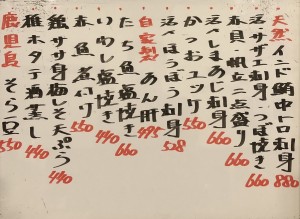 天然インド鮪中トロ刺身 880
活サザエ刺身・つぼ焼き 660
赤貝・帆立二点盛り 660
活〆しまあじ刺身 550
かつおユッケ 550
活〆ほうぼう刺身 528
自家製 あん肝 495
たち魚塩焼き 660
いわし塩焼き 440
赤魚煮付け 550
鶏ササ身梅しそ天ぷら 440
稚ホタテ酒蒸し 440
鹿児島 そら豆 550